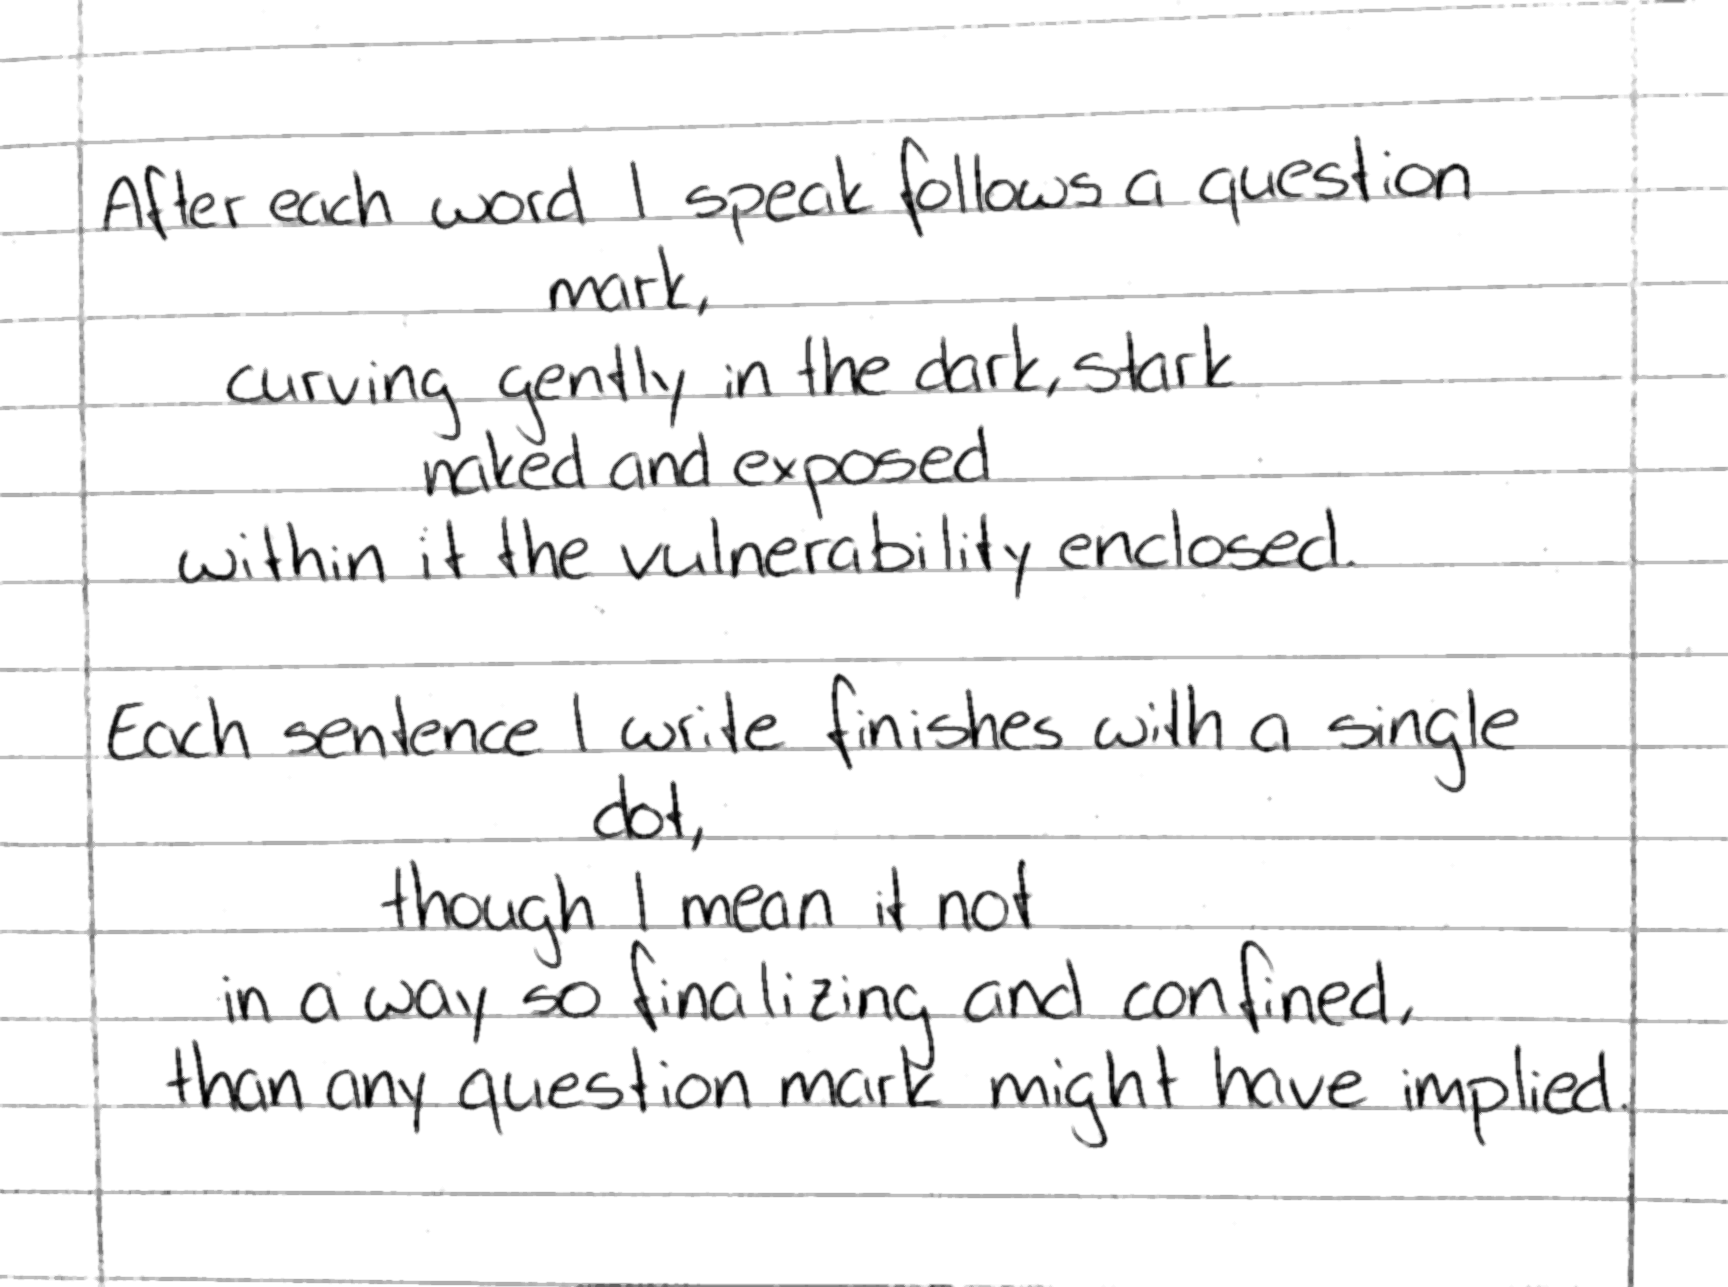 After each word I speak follows a question
mark,
curving gently in the dark, stark
naked and exposed
within it the vulnerability enclosed.
Each sentence I write finishes with a single
dot,
though I mean it not
in a way so finalizing and confined,
than any question mark might have implied.